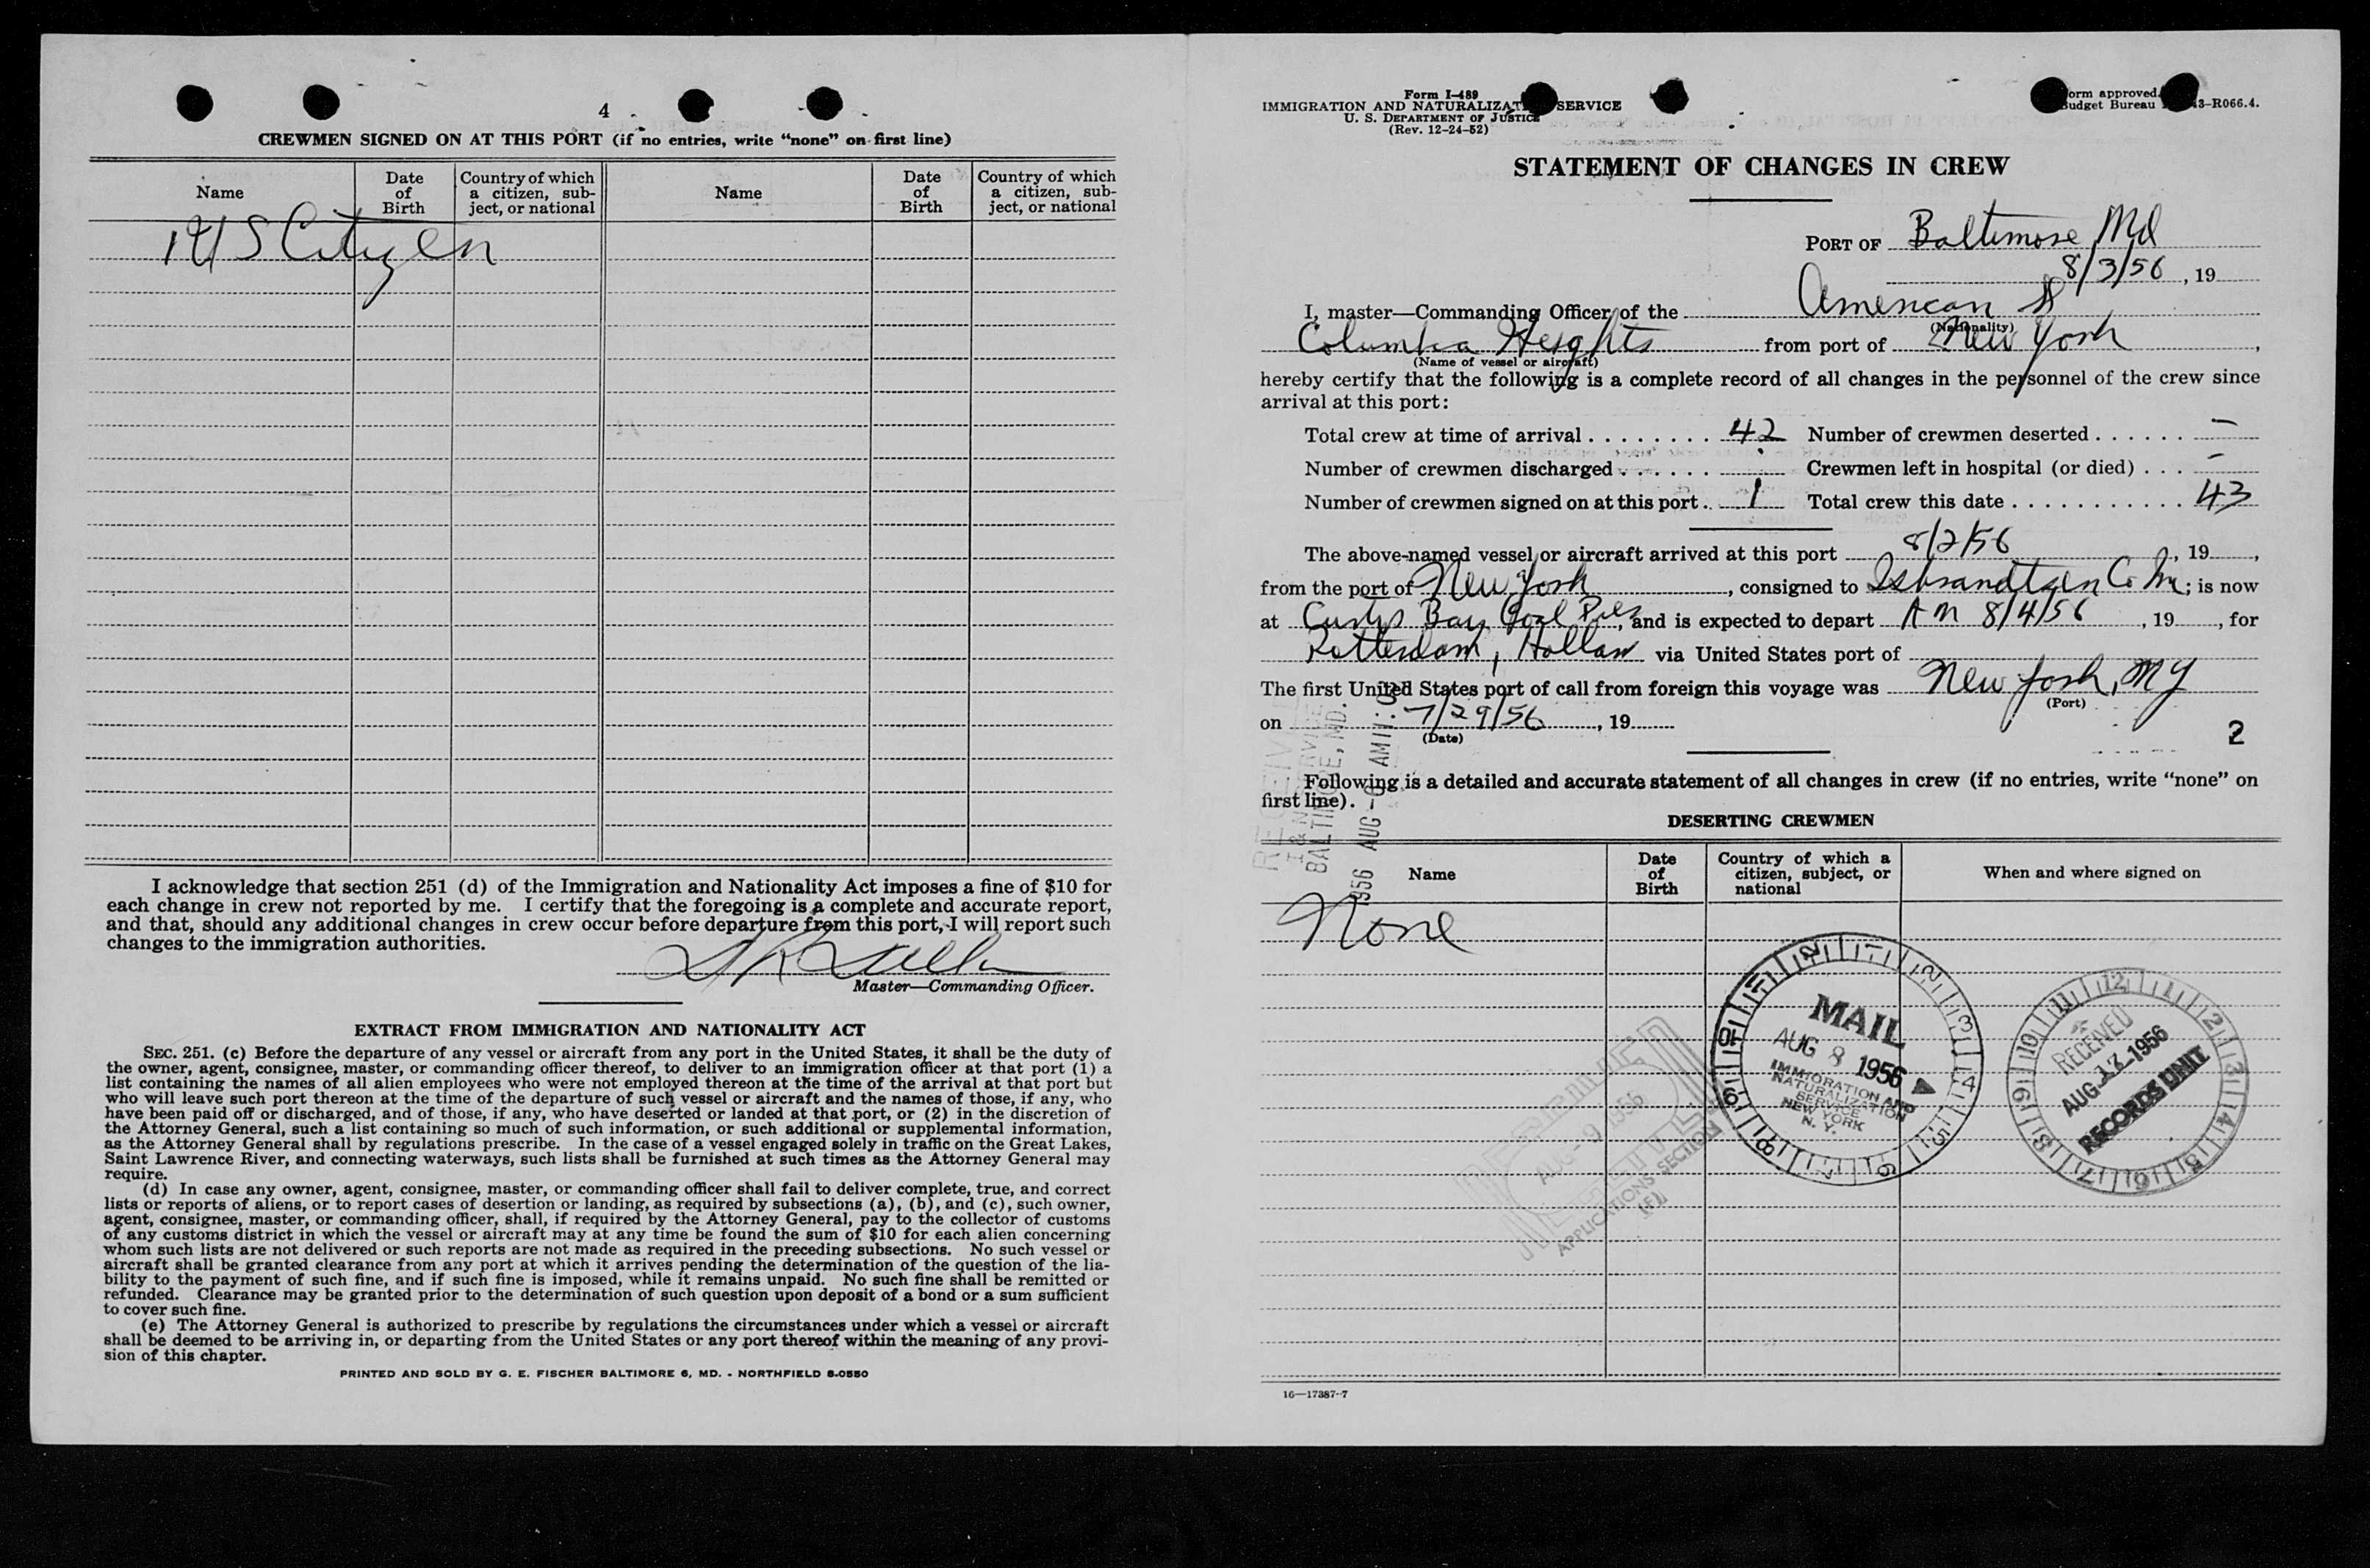 4
CREWMEN SIGNED ON AT THIS PORT (if no entries, write “none” on first line)
Name
Date of Birth
Country of which a citizen, subject, or national
Name
Date of Birth
Country of which a citizen, subject, or national
1 US Citizen
I acknowledge that section 251 (d) of the Immigration and Nationality Act imposes a fine of $10 for
each change in crew not reported by me. I certify that the foregoing is a complete and accurate report,
and that, should any additional changes in crew occur before departure from this port, I will report such
changes to the immigration authorities.
Master—Commanding Officer.
EXTRACT FROM IMMIGRATION AND NATIONALITY ACT
SEC. 251. (c) Before the departure of any vessel or aircraft from any port in the United States, it shall be the duty of
the owner, agent, consignee, master, or commanding officer thereof, to deliver to an immigration officer at that port (1) a
list containing the names of all alien employees who were not employed thereon at the time of the arrival at that port but
who will leave such port thereon at the time of the departure of such vessel or aircraft and the names of those, if any, who
have been paid off or discharged, and of those, if any, who have deserted or landed at that port, or (2) in the discretion of
the Attorney General, such a list containing so much of such information, or such additional or supplemental information,
as the Attorney General shall by regulations prescribe. In the case of a vessel engaged solely in traffic on the Great Lakes,
Saint Lawrence River, and connecting waterways, such lists shall be furnished at such times as the Attorney General may
require.
(d) In case any owner, agent, consignee, master, or commanding officer shall fail to deliver complete, true, and correct
lists or reports of aliens, or to report cases of desertion or landing, as required by subsections (a), (b), and (c), such owner,
agent, consignee, master, or commanding officer, shall, if required by the Attorney General, pay to the collector of customs
of any customs district in which the vessel or aircraft may at any time be found the sum of $10 for each alien concerning
whom such lists are not delivered or such reports are not made as required in the preceding subsections. No such vessel or
aircraft shall be granted clearance from any port at which it arrives pending the determination of the question of the lia-
bility to the payment of such fine, and if such fine is imposed, while it remains unpaid. No such fine shall be remitted or
refunded. Clearance may be granted prior to the determination of such question upon deposit of a bond or a sum sufficient
to cover such fine.
(e) The Attorney General is authorized to prescribe by regulations the circumstances under which a vessel or aircraft
shall be deemed to be arriving in, or departing from the United States or any port thereof within the meaning of any provi-
sion of this chapter.
PRINTED AND SOLD BY G. E. FISCHER BALTIMORE 6, MD. - NORTHFIELD 8-0550
Form I-489
IMMIGRATION AND NATURALIZAT SERVICE
U. S. DEPARTMENT OF JUSTICE
(Rev. 12-24-52)
orm approved.
udget Bureau 3-R066.4.
STATEMENT OF CHANGES IN CREW
PORT OF Baltimore, Md
8/3/56, 19
I, master—Commanding Officer of the American
(Nationality)
Columbia Heights from port of New York,
(Name of vessel or aircraft)
hereby certify that the following is a complete record of all changes in the personnel of the crew since
arrival at this port:
Total crew at time of arrival 42 Number of crewmen deserted –
Number of crewmen discharged Crewmen left in hospital (or died) –
Number of crewmen signed on at this port 1 Total crew this date 43
The above-named vessel or aircraft arrived at this port 8/2/56, 19,
from the port of New York, consigned to Isbrandtsen Co Inc; is now
at Curtis Bay Coal Pier, and is expected to depart AM 8/4/56, 19, for
Rotterdam, Hollan via United States port of
The first United States port of call from foreign this voyage was New York, NY
(Port)
on 7/29/56, 19
(Date)
2
Following is a detailed and accurate statement of all changes in crew (if no entries, write “none” on
first line).
DESERTING CREWMEN
Name
Date of Birth
Country of which a citizen, subject, or national
When and where signed on
None
BALTIMORE, MD.
1956 AUG -6 AM
MAIL
AUG 8 1956
IMMIGRATION AND
NATURALIZATION
SERVICE
NEW YORK
N. Y.
RECEIVED
AUG 17 1956
RECORDS UNIT
AUG -9 1956
APPLICATIONS SECTION
16—17387-7